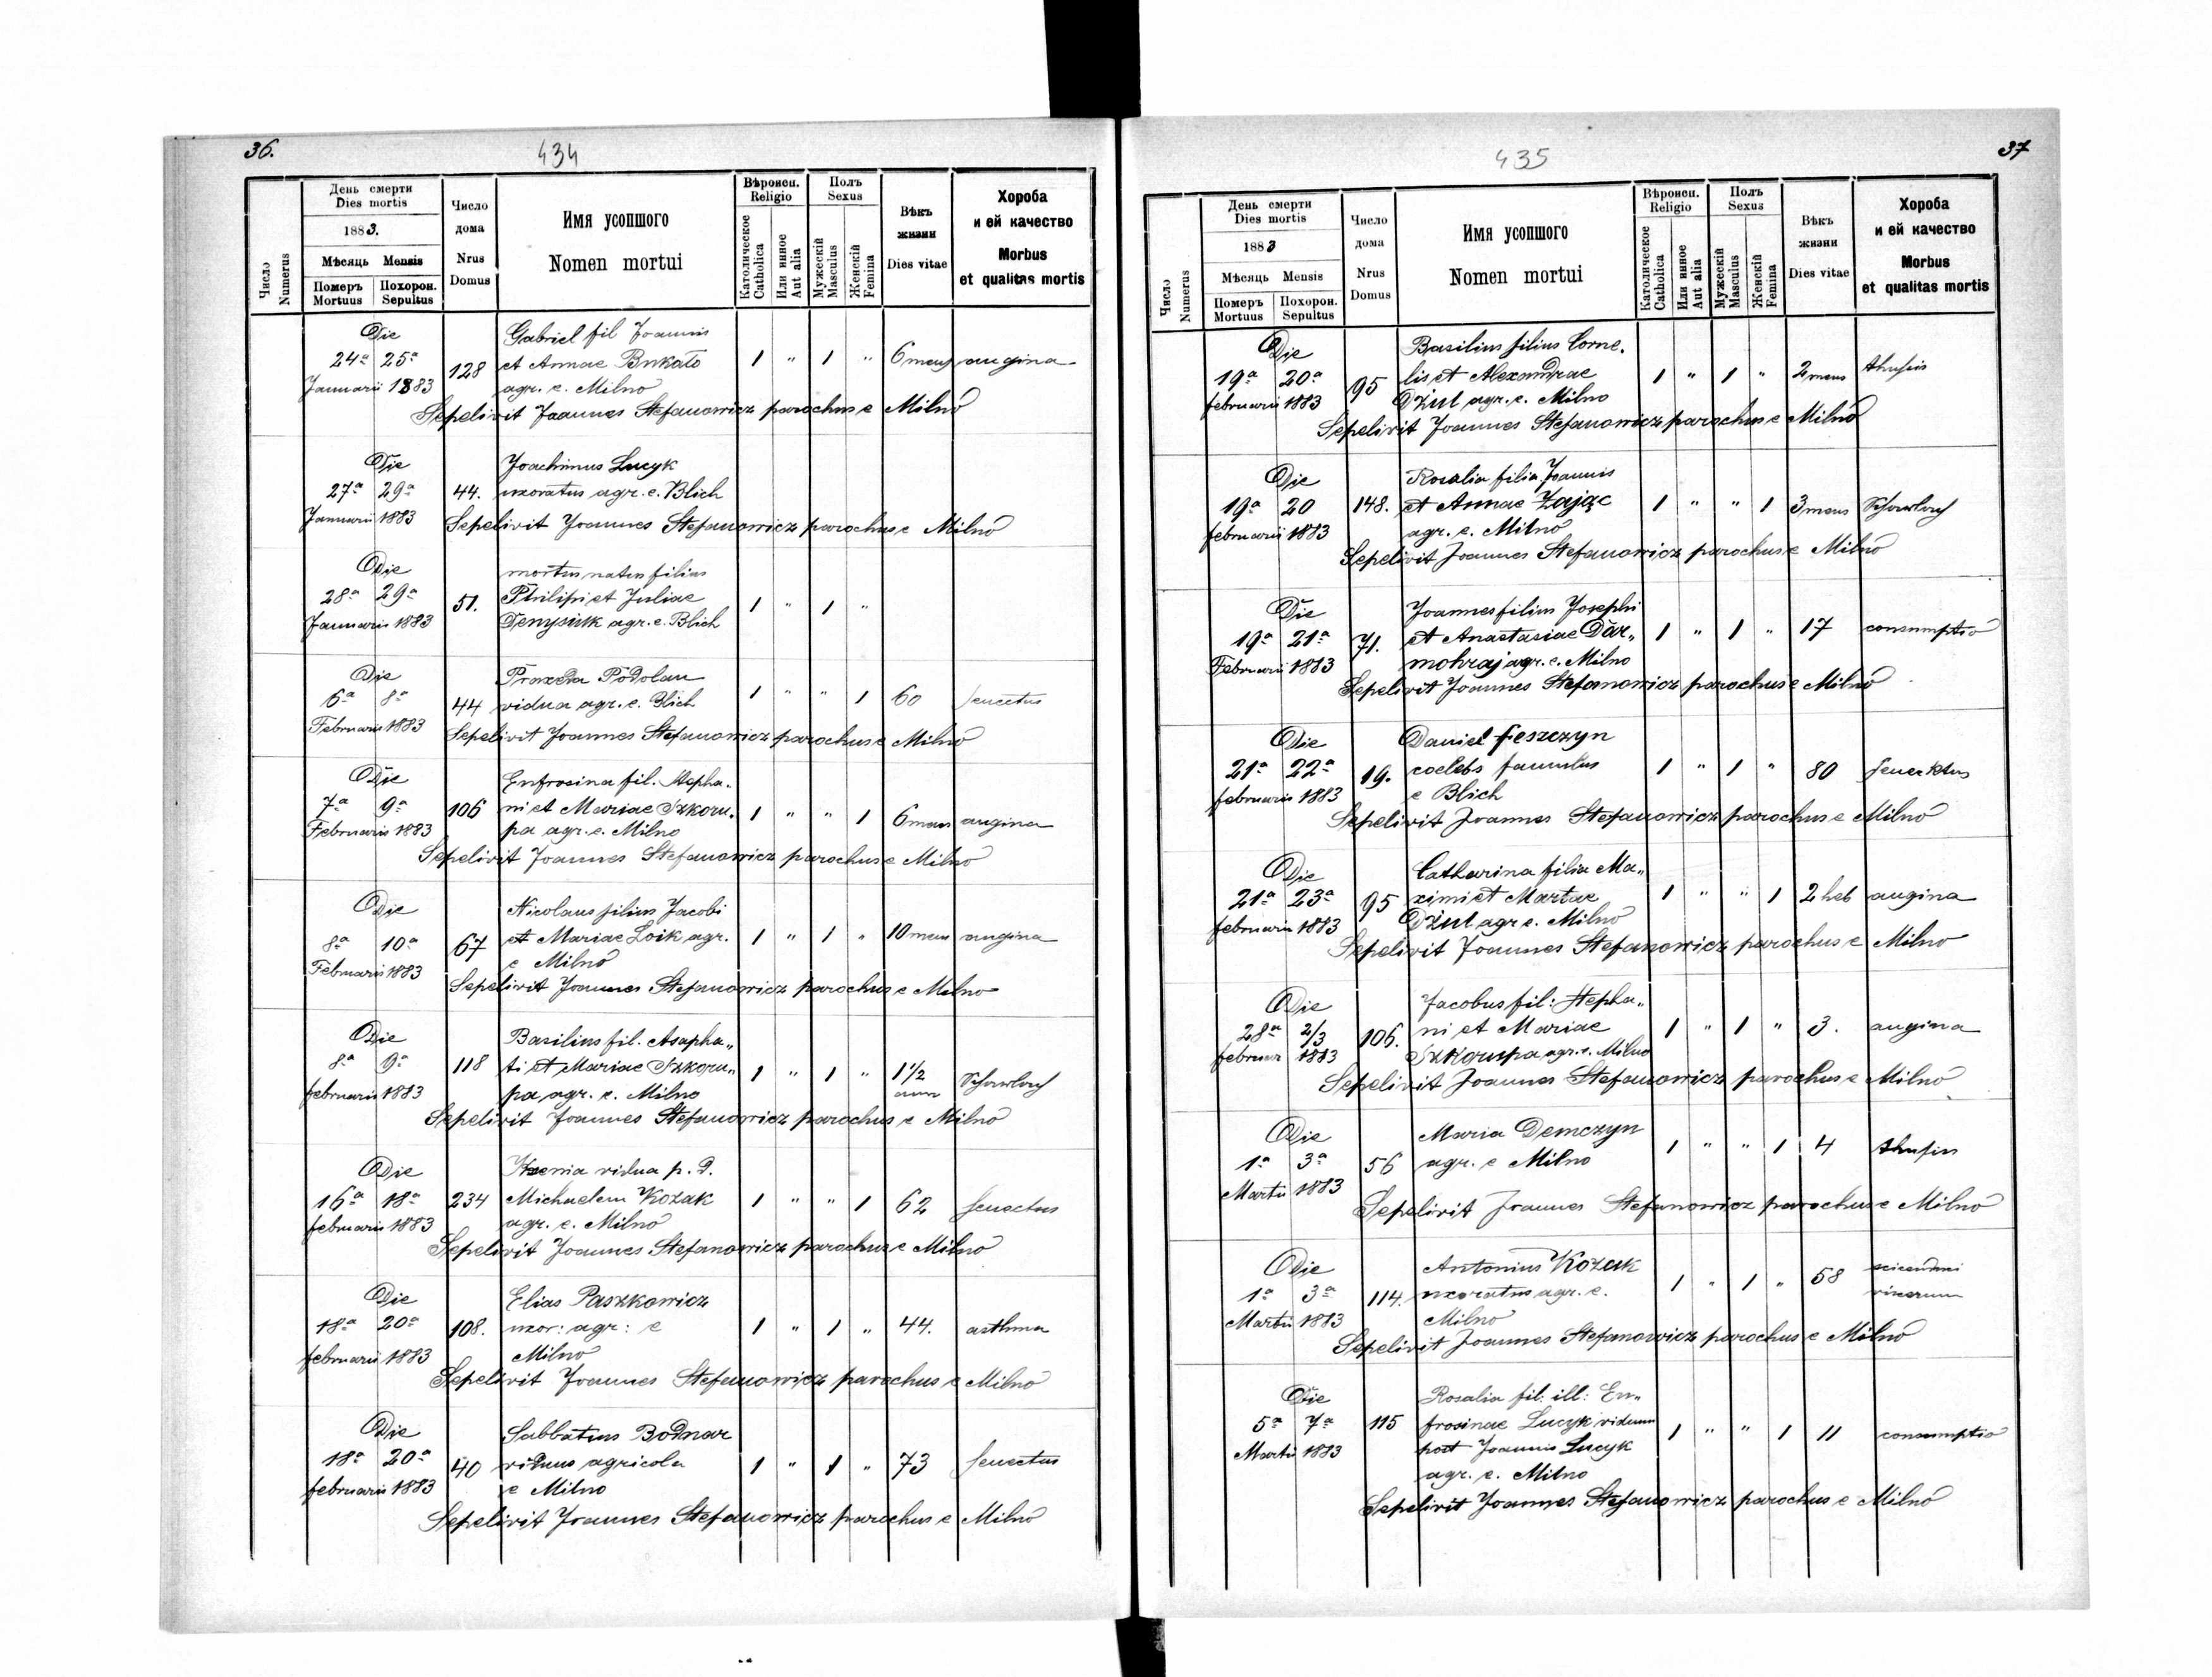 36.
434
День смерти
Dies mortis
1883.
Мѣсяць Mensis
Померъ Mortuus
Похорон. Sepultus
Число Numerus
Число дома
Nrus Domus
Имя усопшого
Nomen mortui
Вѣроисп.
Religio
Католическое Catholica
Или инное Aut alia
Полъ
Sexus
Мужескій Masculus
Женскій Femina
Вѣкъ жизни
Dies vitae
Хороба и ей качество
Morbus et qualitas mortis
Die Gabriel fil Joannis
24a 25a 128 et Annae Bukało 1 " 1 " 6 mens angina
Januarii 1883 agr. e. Milno
Sepelivit Joannes Stefanowicz parochus e Milno
Die Joachimus Lucyk
27a 29a 44. uxoratus agr. e. Blich
Januarii 1883 Sepelivit Joannes Stefanowicz parochus e Milno
Die mortus natus filius
28a 29a 51. Philipi et Juliae 1 " 1 "
Januarii 1883 Denysiuk agr. e. Blich
Die Praxeda Podolan
6a 8a 44 vidua agr. e. Blich 1 " " 1 60 senectus
Februarii 1883 Sepelivit Joannes Stefanowicz parochus e Milno
Die Eufrosina fil. Stepha-
7a 9a 106 ni et Mariae Szkoru- 1 " " 1 6 mens angina
Februarii 1883 pa agr. e. Milno
Sepelivit Joannes Stefanowicz parochus e Milno
Die Nicolaus filius Jacobi
8a 10a 67 et Mariae Loik agr. 1 " 1 " 10 mens angina
Februarii 1883 e Milno
Sepelivit Joannes Stefanowicz parochus e Milno
Die Basilius fil. Asapha„
8a 9a 118 ti et Mariae Szkoru„ 1 " 1 " 1 1/2 ann
februarii 1883 pa agr. e. Milno
Sepelivit Joannes Stefanowicz parochus e Milno
Die Xenia vidua p. D.
16a 18a 234 Michaelem Kozak 1 " " 1 62 senectus
februarii 1883 agr. e. Milno
Sepelivit Joannes Stefanowicz parochus e Milno
Die Elias Paszkowicz
18a 20a 108. uxor: agr: e 1 " 1 " 44. asthma
februarii 1883 Milno
Sepelivit Joannes Stefanowicz parochus e Milno
Die Sabbatius Bodnar
18a 20a 40 viduus agricola 1 " 1 " 73 senectus
februarii 1883 e Milno
Sepelivit Joannes Stefanowicz parochus e Milno
37
435
День смерти
Dies mortis
1883
Мѣсяць Mensis
Померъ Mortuus
Похорон. Sepultus
Число Numerus
Число дома
Nrus Domus
Имя усопшого
Nomen mortui
Вѣроисп.
Religio
Католическое Catholica
Или инное Aut alia
Полъ
Sexus
Мужескій Masculus
Женскій Femina
Вѣкъ жизни
Dies vitae
Хороба и ей качество
Morbus et qualitas mortis
Die Basilius filius Corne.
19a 20a 95 lis et Alexandrae 1 " 1 " 2 mens thusis
februarii 1883 Dżul agr. e. Milno
Sepelivit Joannes Stefanowicz parochus e Milno
Die Rosalia filia Joannis
19a 20 148. et Annae Zając 1 " " 1 3 mens
februarii 1883 agr. e. Milno
Sepelivit Joannes Stefanowicz parochus e Milno
Die Joannes filius Josephi
19a 21a 71. et Anastasiae Dar„ 1 " 1 " 17 consumptio
Februarii 1883 mohraj agr. e. Milno
Sepelivit Joannes Stefanowicz parochus e Milno
Die Daniel Feszczyn
21a 22a 19. coelebs famulus 1 " 1 " 80
februarii 1883 e Blich
Sepelivit Joannes Stefanowicz parochus e Milno
Die Catharina filia Ma„
21a 23a 95 ximi et Martae 1 " " 1 2 heb angina
februarii 1883 Dżul agr e. Milno
Sepelivit Joannes Stefanowicz parochus e Milno
Die Jacobus fil: Stepha„
28a 2/3 106. ni et Mariae 1 " 1 " 3. angina
februar 1883 Szkorupa agr. e. Milno
Sepelivit Joannes Stefanowicz parochus e Milno
Die Maria Demczyn
1a 3a 56 agr. e Milno 1 " " 1 4 thusis
Martii 1883
Sepelivit Joannes Stefanowicz parochus e Milno
Die Antonius Kozak
1a 3a 114. uxoratus agr. e. 1 " 1 " 58
Martii 1883 Milno
Sepelivit Joannes Stefanowicz parochus e Milno
Die Rosalia fil: ill: Eu„
5a 7a 115 frosinae Lucyk viduam 1 " " 1 11 consumptio
Martii 1883 post Joannis Lucyk
agr. e. Milno
Sepelivit Joannes Stefanowicz parochus e Milno